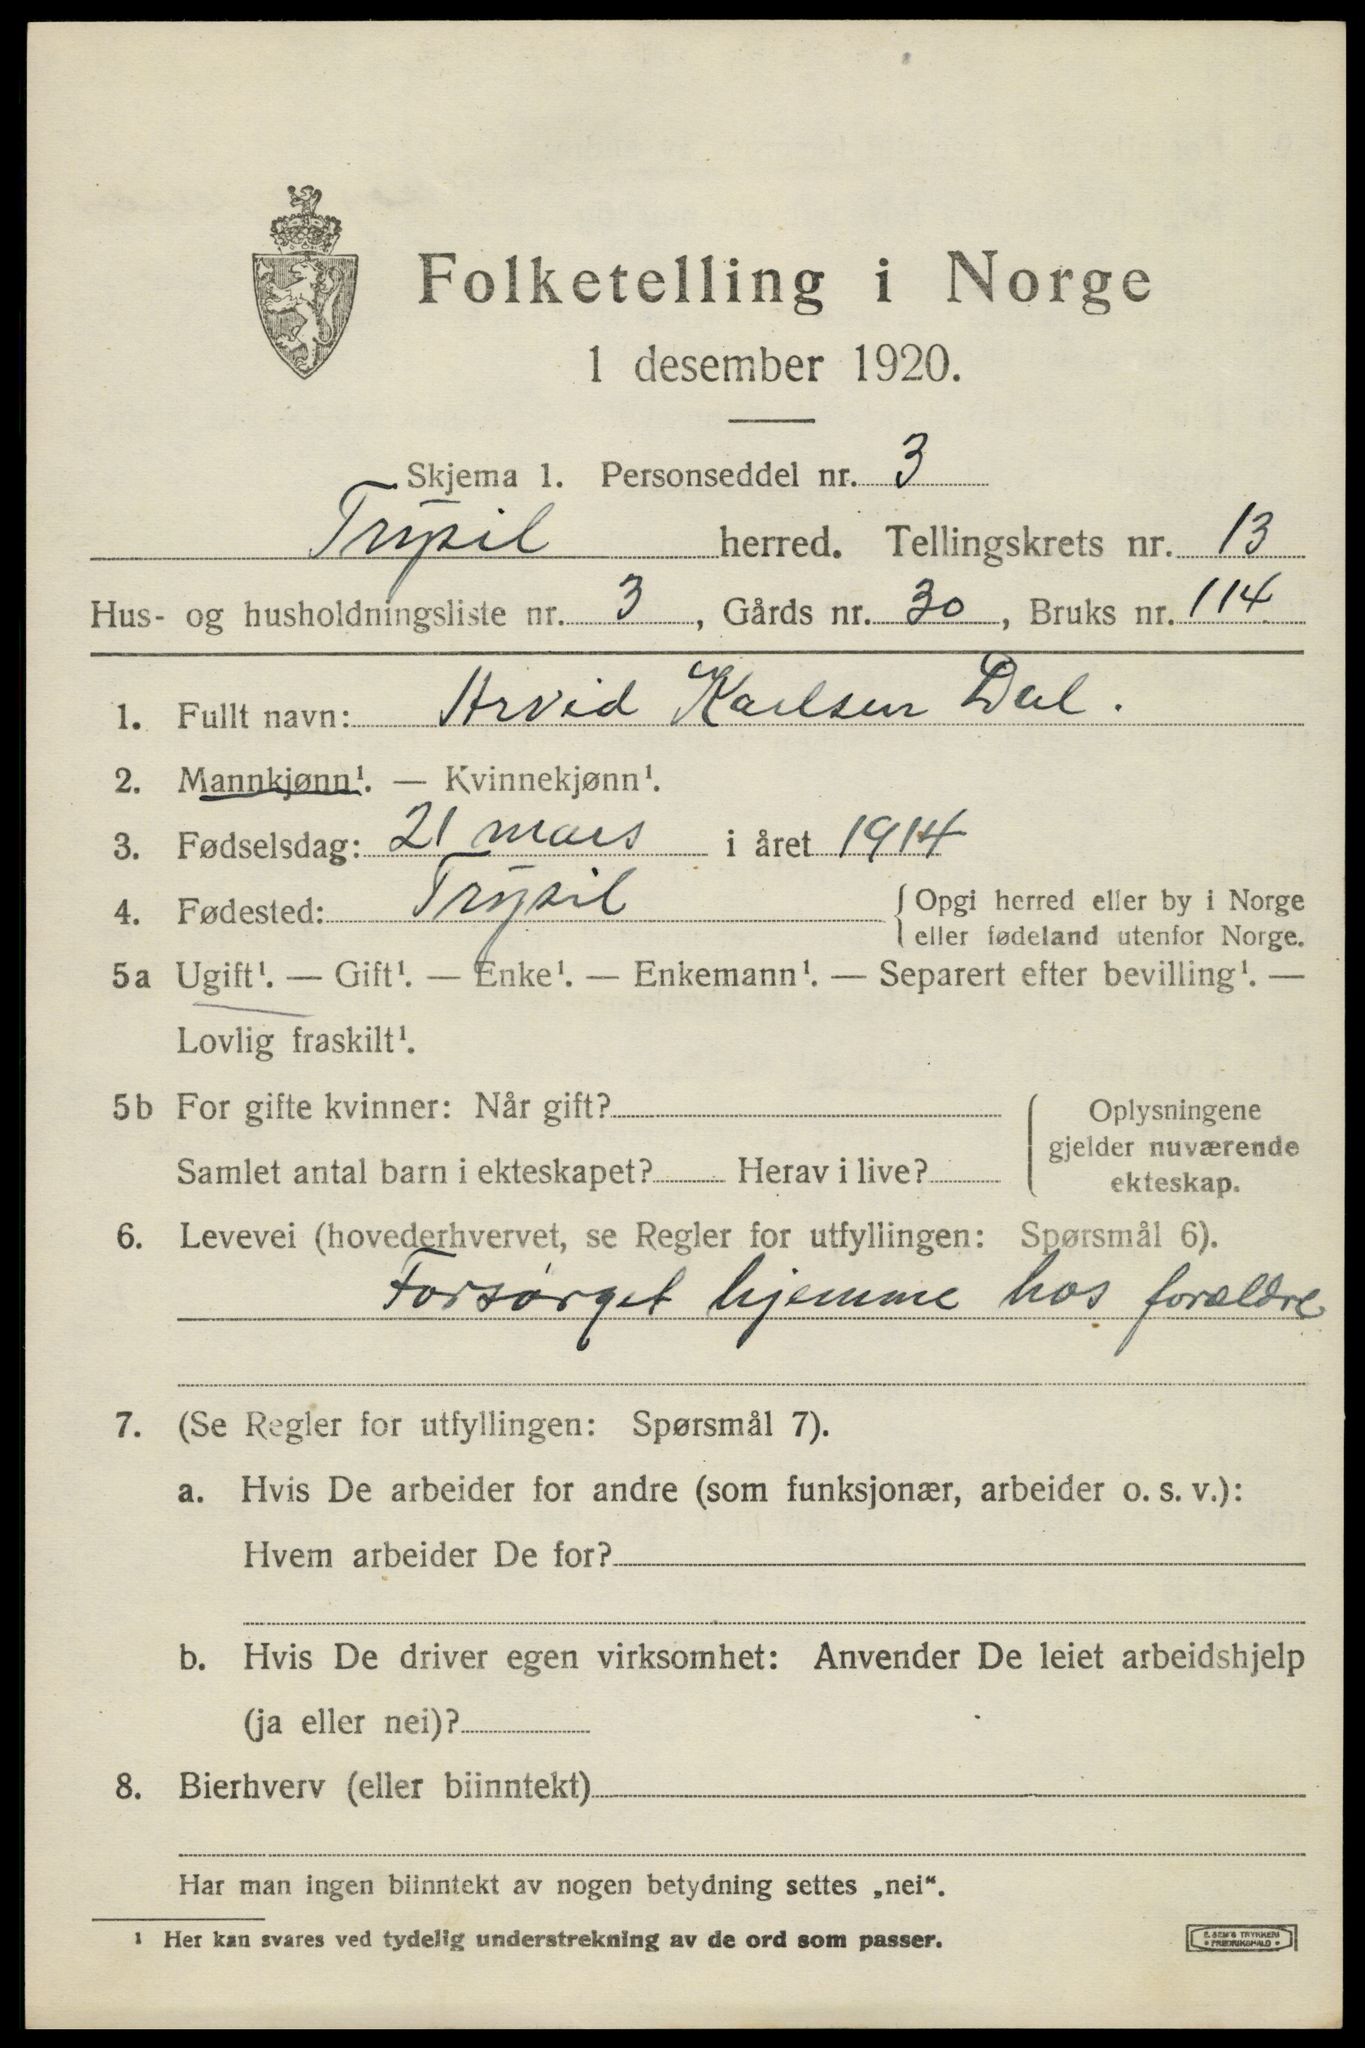 Folketelling i Norge
1 desember 1920.
Skjema 1. Personseddel nr. 3
Trysil herred. Tellingskrets nr. 13
Hus- og husholdningsliste nr. 3, Gårds nr. 30, Bruks nr. 114
1. Fullt navn: Arvid Karlsen
2. Mannkjønn¹. — Kvinnekjønn¹.
3. Fødselsdag: 21 mars i året 1914
4. Fødested: Trysil { Opgi herred eller by i Norge
eller fødeland utenfor Norge.
5a Ugift¹. — Gift¹. — Enke¹. — Enkemann¹. — Separert efter bevilling¹. —
Lovlig fraskilt¹.
5b For gifte kvinner: Når gift? { Oplysningene
gjelder nuværende
Samlet antal barn i ekteskapet? Herav i live?
ekteskap.
6. Levevei (hovederhvervet, se Regler for utfyllingen: Spørsmål 6).
Forsørget hjemme hos forældre
7. (Se Regler for utfyllingen: Spørsmål 7).
a. Hvis De arbeider for andre (som funksjonær, arbeider o. s. v.):
Hvem arbeider De for?
b. Hvis De driver egen virksomhet: Anvender De leiet arbeidshjelp
(ja eller nei)?
8. Bierhverv (eller biinntekt)
Har man ingen biinntekt av nogen betydning settes „nei“.
¹ Her kan svares ved tydelig understrekning av de ord som passer.
E. SEM'S TRYKKERI
• FREDRIKSHALD •